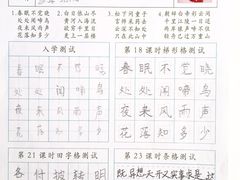 1. 春眠不觉晓
处处闻啼鸟
夜来风雨声
花落知多少
2. 白日依山尽
黄河入海流
欲穷千里目
更上一层楼
3. 松下问童子
言师采药去
只在此山中
云深不知处
4. 朝辞白帝彩云间
千里江陵一日还
两岸猿声啼不住
轻舟已过万重山
入学测试
春眠不觉晓
处处闻啼鸟
夜来风雨声
花落知多少
第18课时梯形格测试
春眠不觉晓
处处闻啼鸟
夜来风雨声
花落知多少
第21课时田字格测试
各付披转明
第23课时条格测试
既异想天开又实事求是